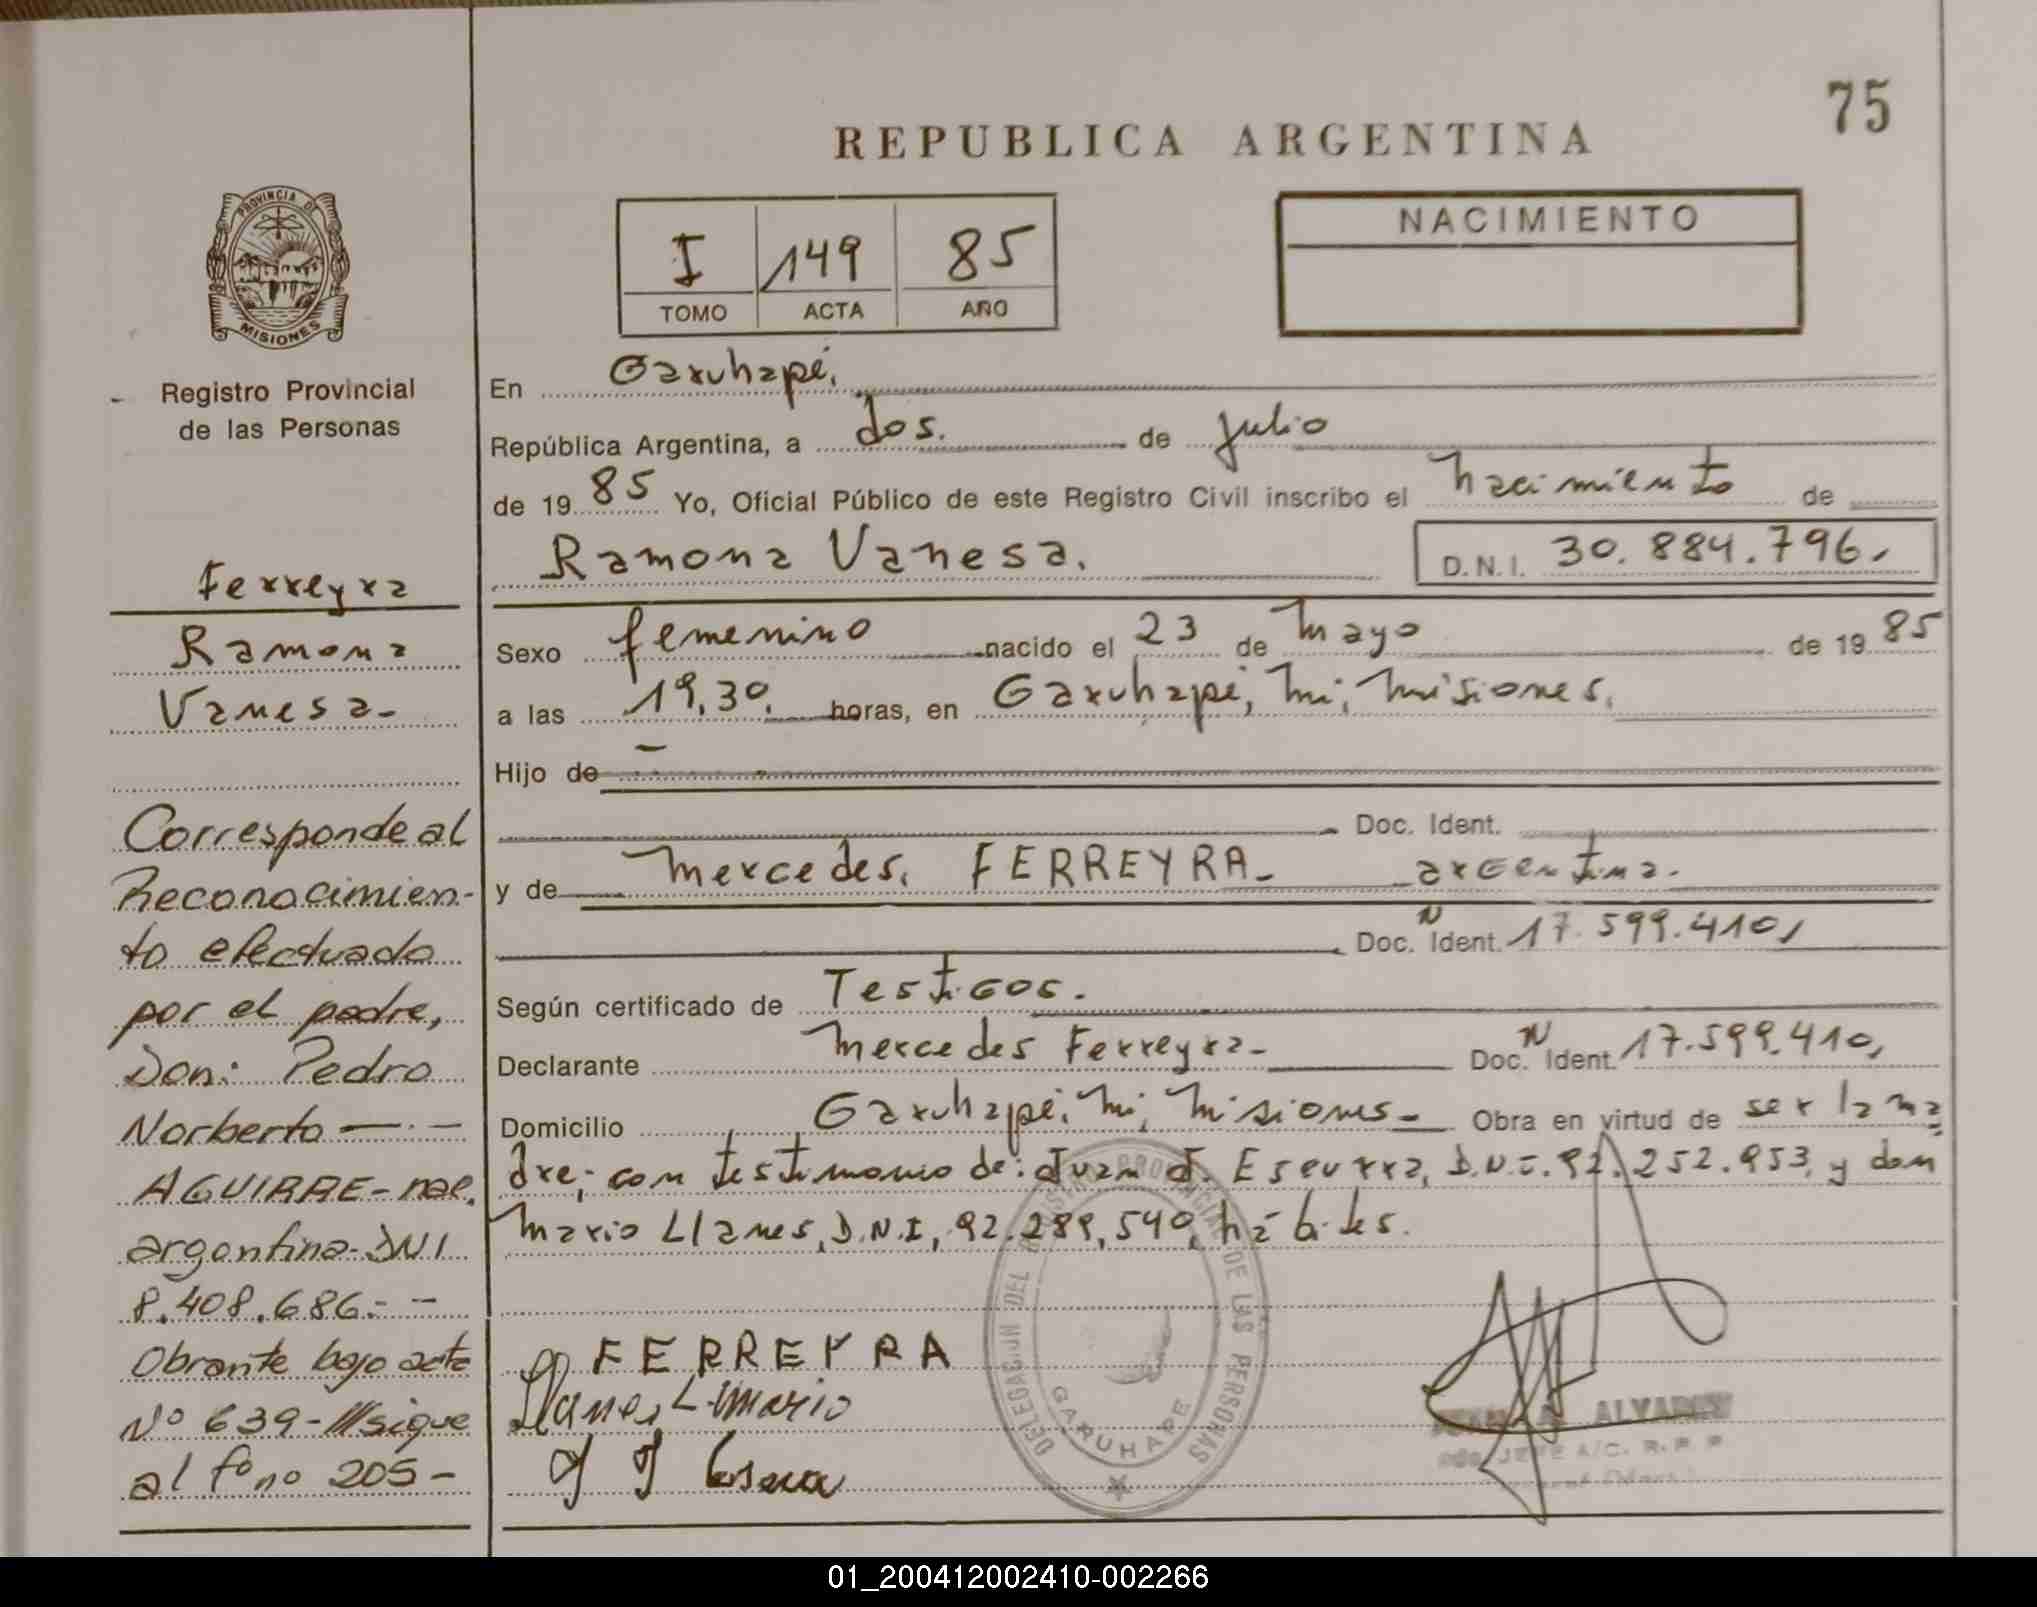 75
REPUBLICA ARGENTINA
PROVINCIA DE
MISIONES
Registro Provincial
de las Personas
I 149 85
TOMO ACTA AÑO
NACIMIENTO
Ferreyra
Ramona
Vanesa.-
Corresponde al
Reconocimien-
to efectuado
por el padre,
Don: Pedro
Norberto —.—
AGUIRRE- nac.
argentina- DNI
8.408.686.- -
Obrante bajo acta
Nº 639-///sigue
al fono 205-
En Garuhapé,
República Argentina, a dos. de julio
de 19 85 Yo, Oficial Público de este Registro Civil inscribo el nacimiento de
Ramona Vanesa. D.N.I. 30.884.796.
Sexo femenino nacido el 23 de mayo de 19 85
a las 19,30, horas, en Garuhapé, Mi, Misiones.
Hijo de -
Doc. Ident.
y de Mercedes. FERREYRA- argentina.
Doc. N Ident. 17.599.410,
Según certificado de Testigos.
Declarante Mercedes Ferreyra- Doc. N Ident. 17.599.410,
Domicilio Garuhapé, Mi, Misiones- Obra en virtud de ser la ma
dre; con testimonio de: Juan J. Escurra, D.N.I. 92.252.953, y don
Mario Llanes, D.N.I, 92.289,540, hábiles.
FERREYRA
Llanes L. Mario
DELEGACION DEL REGISTRO PROVINCIAL DE LAS PERSONAS
GARUHAPE
ALVAREZ
JEFE A/C. R. P. P.
01_200412002410-002266